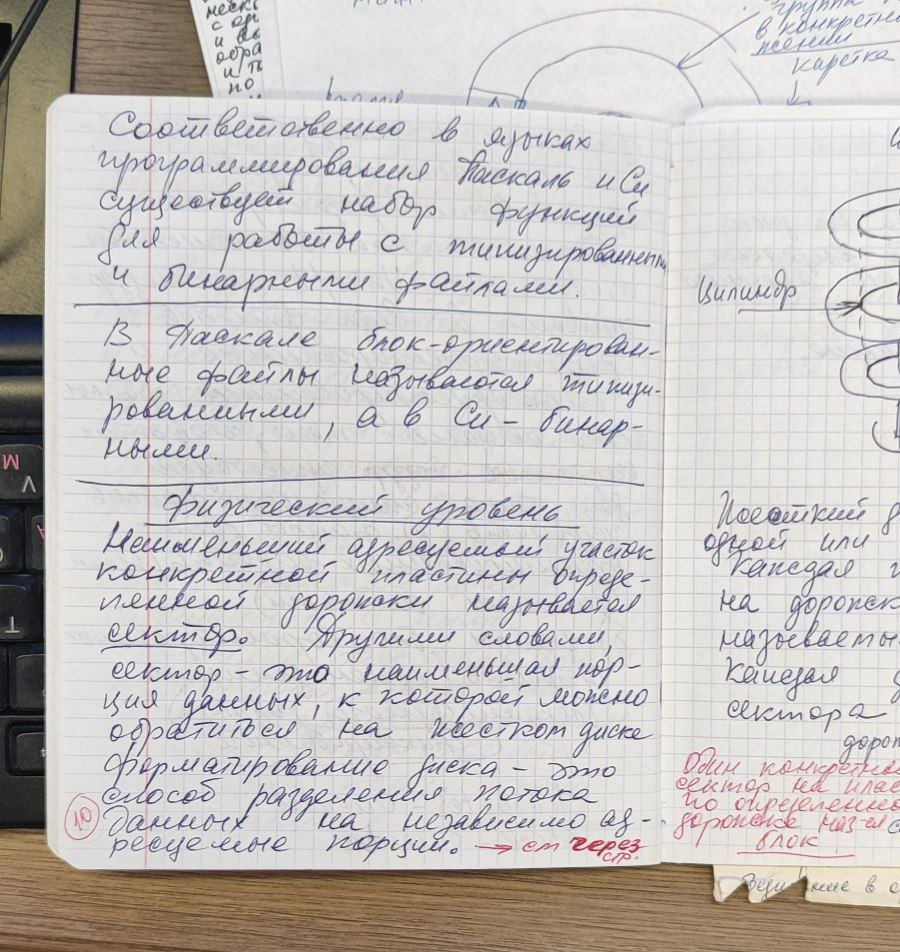 неск
с ор
и вы
обра
и т
по
группа
в конкретн
жении
каретка
Соответственно в языках
программирования Паскаль и Си
существует набор функций
для работы с типизированными
и бинарными файлами.
В Паскале блок-ориентирован-
ные файлы называются типизи-
рованными, а в Си – бинар-
ными.
Физический уровень
Наименьший адресуемый участок
конкретной пластины опреде-
ленной дорожки называется
сектор. Другими словами,
сектор – это наименьшая пор-
ция данных, к которой можно
обратиться на жестком диске
Форматирование диска – это
способ разделения потока
данных на независимо ад-
ресуемые порции. → см через
стр.
10
Цилиндр
Жесткий д
одной или
Каждая п
на дорожк
называеты
Каждая д
сектора
дорож
Один конкретно
сектор на плас
по определенно
дорожке наз-ся
блок.
в с
V
M
A
T